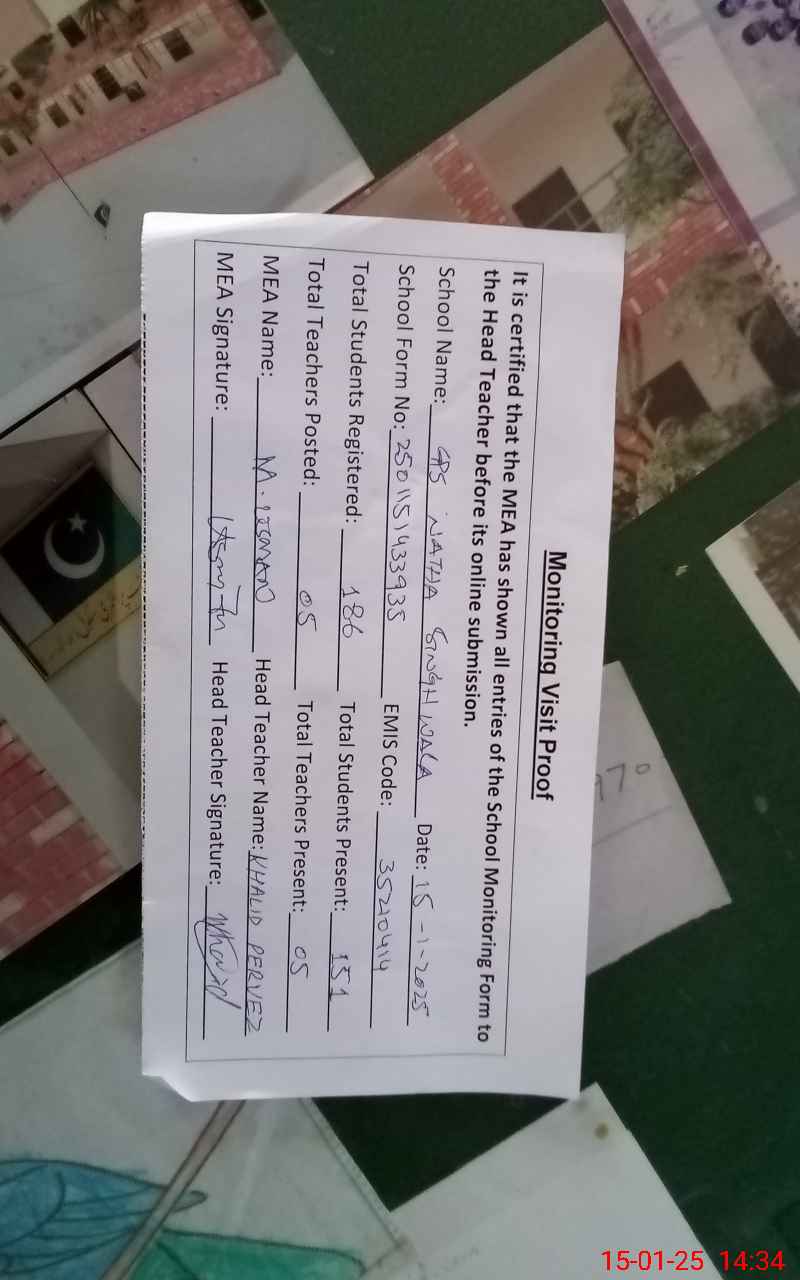 Monitoring Visit Proof
It is certified that the MEA has shown all entries of the School Monitoring Form to
the Head Teacher before its online submission.
School Name: GPS NATHA SINGH WALA Date: 15-1-2025
School Form No: 2501151433935 EMIS Code: 35210414
Total Students Registered: 186 Total Students Present: 151
Total Teachers Posted: 05 Total Teachers Present: 05
MEA Name: M. USMAN Head Teacher Name: KHALID PERVEZ
MEA Signature: Head Teacher Signature: Khalid
97°
15-01-25 14:34